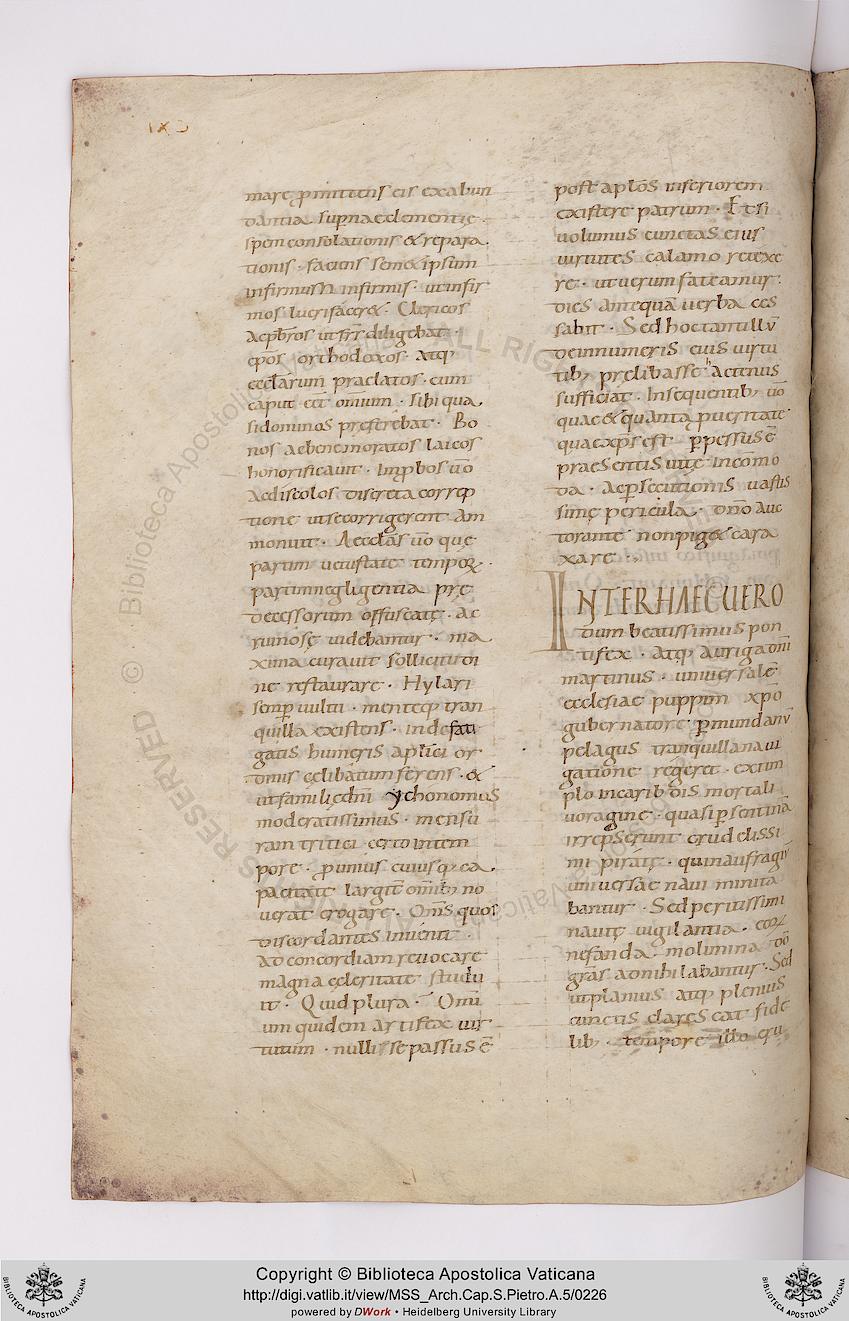 mare p mittens eis ex abun
dantia supnae clementię.
spem consolationis & repara
tionis. faciens semet ipsum
infirmum infirmis. ut infir
mos lucrifacer&. Clericos
ac pbr̄os ut fr̄r diligebat.
ep̄os orthodoxos. atq;
eccl̄arum praelatos. cum
caput eēt omnium. sibi qua
si dominos preferebat. Bo
nos ac bene moratos laicos
honorificauit. Improbos ūo
ac discolos discreta correp
tione ut se corrigerent am
monuit. Aeccl̄as ūo quę
partim uetustate tempoꝝ.
partim negligentia prę
decessorum offuscatę. ac
ruinosę uidebantur. ma
xima curauit sollicitudi
ne restaurare. Hylari
semp uultu. menteq; tran
quilla existens. indefati
gatis humeris ap̄lici or
dinis celibatum ferens. &
ut familię dn̄i ychonomus
moderatissimus. mensu
ram tritici certo in tem
pore. p unius cuiusq; ca
pacitate largit̄ omib; no
uerat erogare. Om̄s quos
discordantes inuenit.
ad concordiam reuocare
magna celeritate studu
it. Quid plura. Omi
um quidem artifex uir
tutum. nulli se passus ē
post ap̄lōs inferiorem
existere patrum. Et si
uolumus cunctas eius
uirtutes calamo retexe
re. ut uerum fateamur.
dies antequā uerba ces
sabit. Sed hoc tantillū
de innumeris eius uirtu
tib; prelibasse hactenus
sufficiat. In sequentib; ūo
quae & quanta p ueritate
quae xp̄s est ppessus ē
praesentis uitę incōmo
da. ac psecutionis uastis
sime pericula. dn̄o auc
torante non pig& cara
xare.
INTER HAEC UERO
dum beatissimus pon
tifex. atq; auriga dn̄i
martinus. uniuersalē
ecclesiae puppim xp̄o
gubernatore. p mundanū
pelagus tranquilla naui
gatione regeret. extim
plo in caribdis mortali
uoragine. quasi p sentinā
irrepserunt crudelissi
mi piratę. qui naufragiū
uniuersae naui minita
bantur. Sed peritissimi
nautę uigilantia. eoꝝ
nefanda molimina dō
gr̄as adnihilabantur. Sed
ut planius atq; plenius
cunctis clarescat fide
lib;. tempore illo cru
Copyright © Biblioteca Apostolica Vaticana
http://digi.vatlib.it/view/MSS_Arch.Cap.S.Pietro.A.5/0226
powered by DWork • Heidelberg University Library